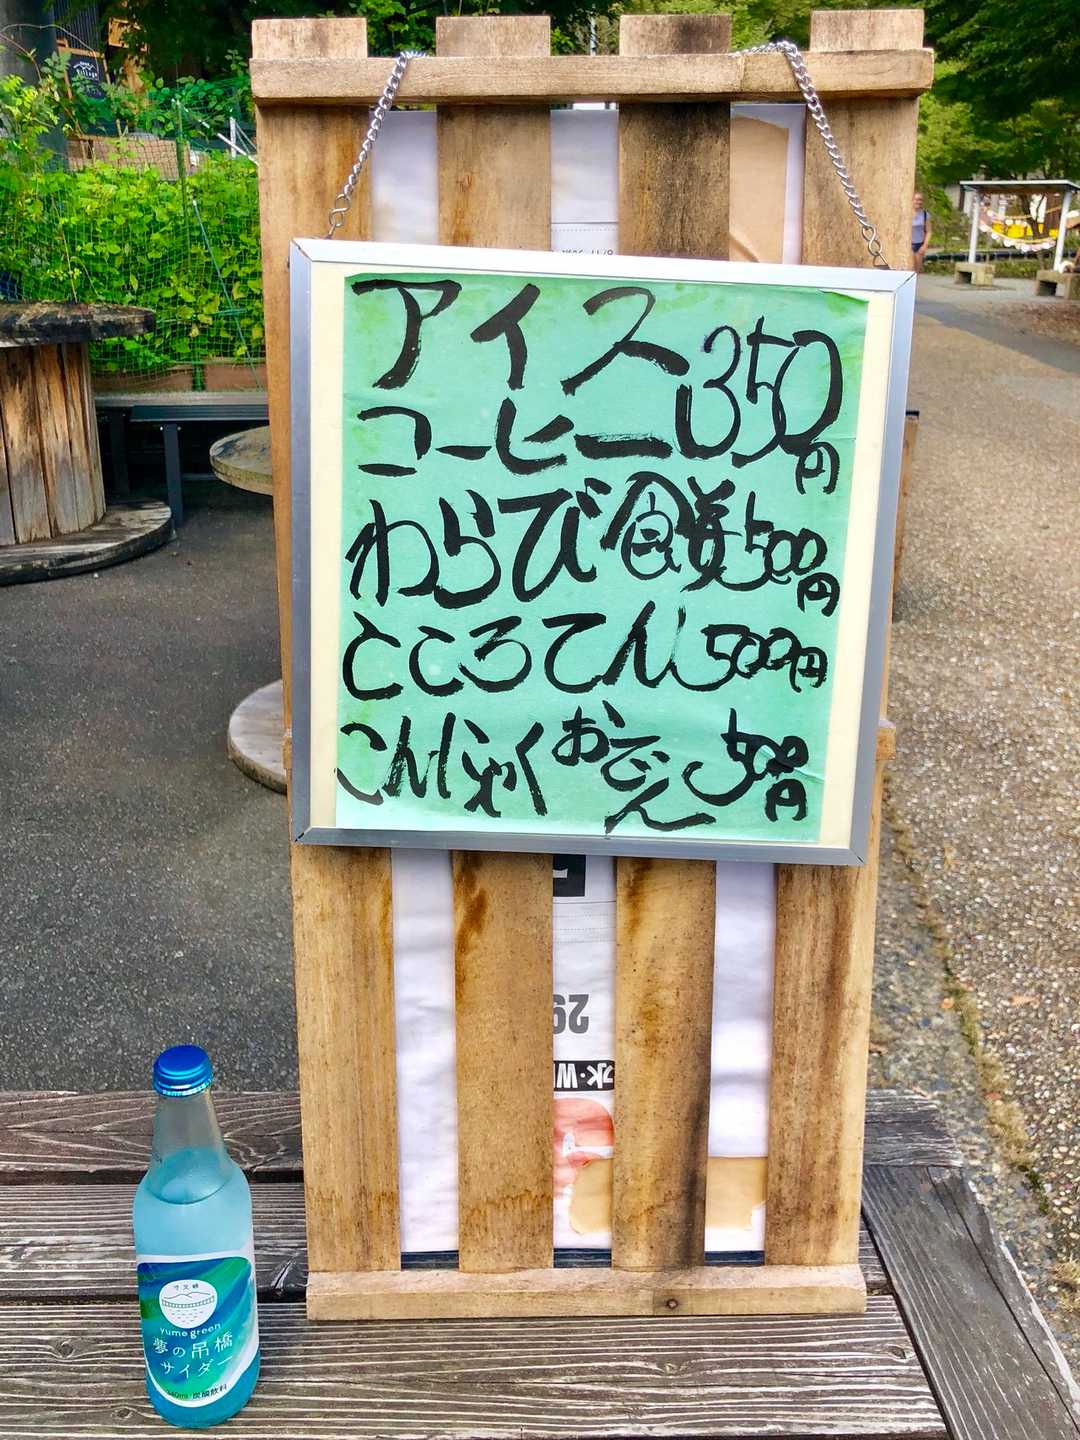 アイス
コーヒー 350円
わらび餅 500円
ところてん 500円
こんにゃくおでん 500円
29
水・W
寸又峡
yume green
夢の吊橋
サイダー
340ml 炭酸飲料
Village